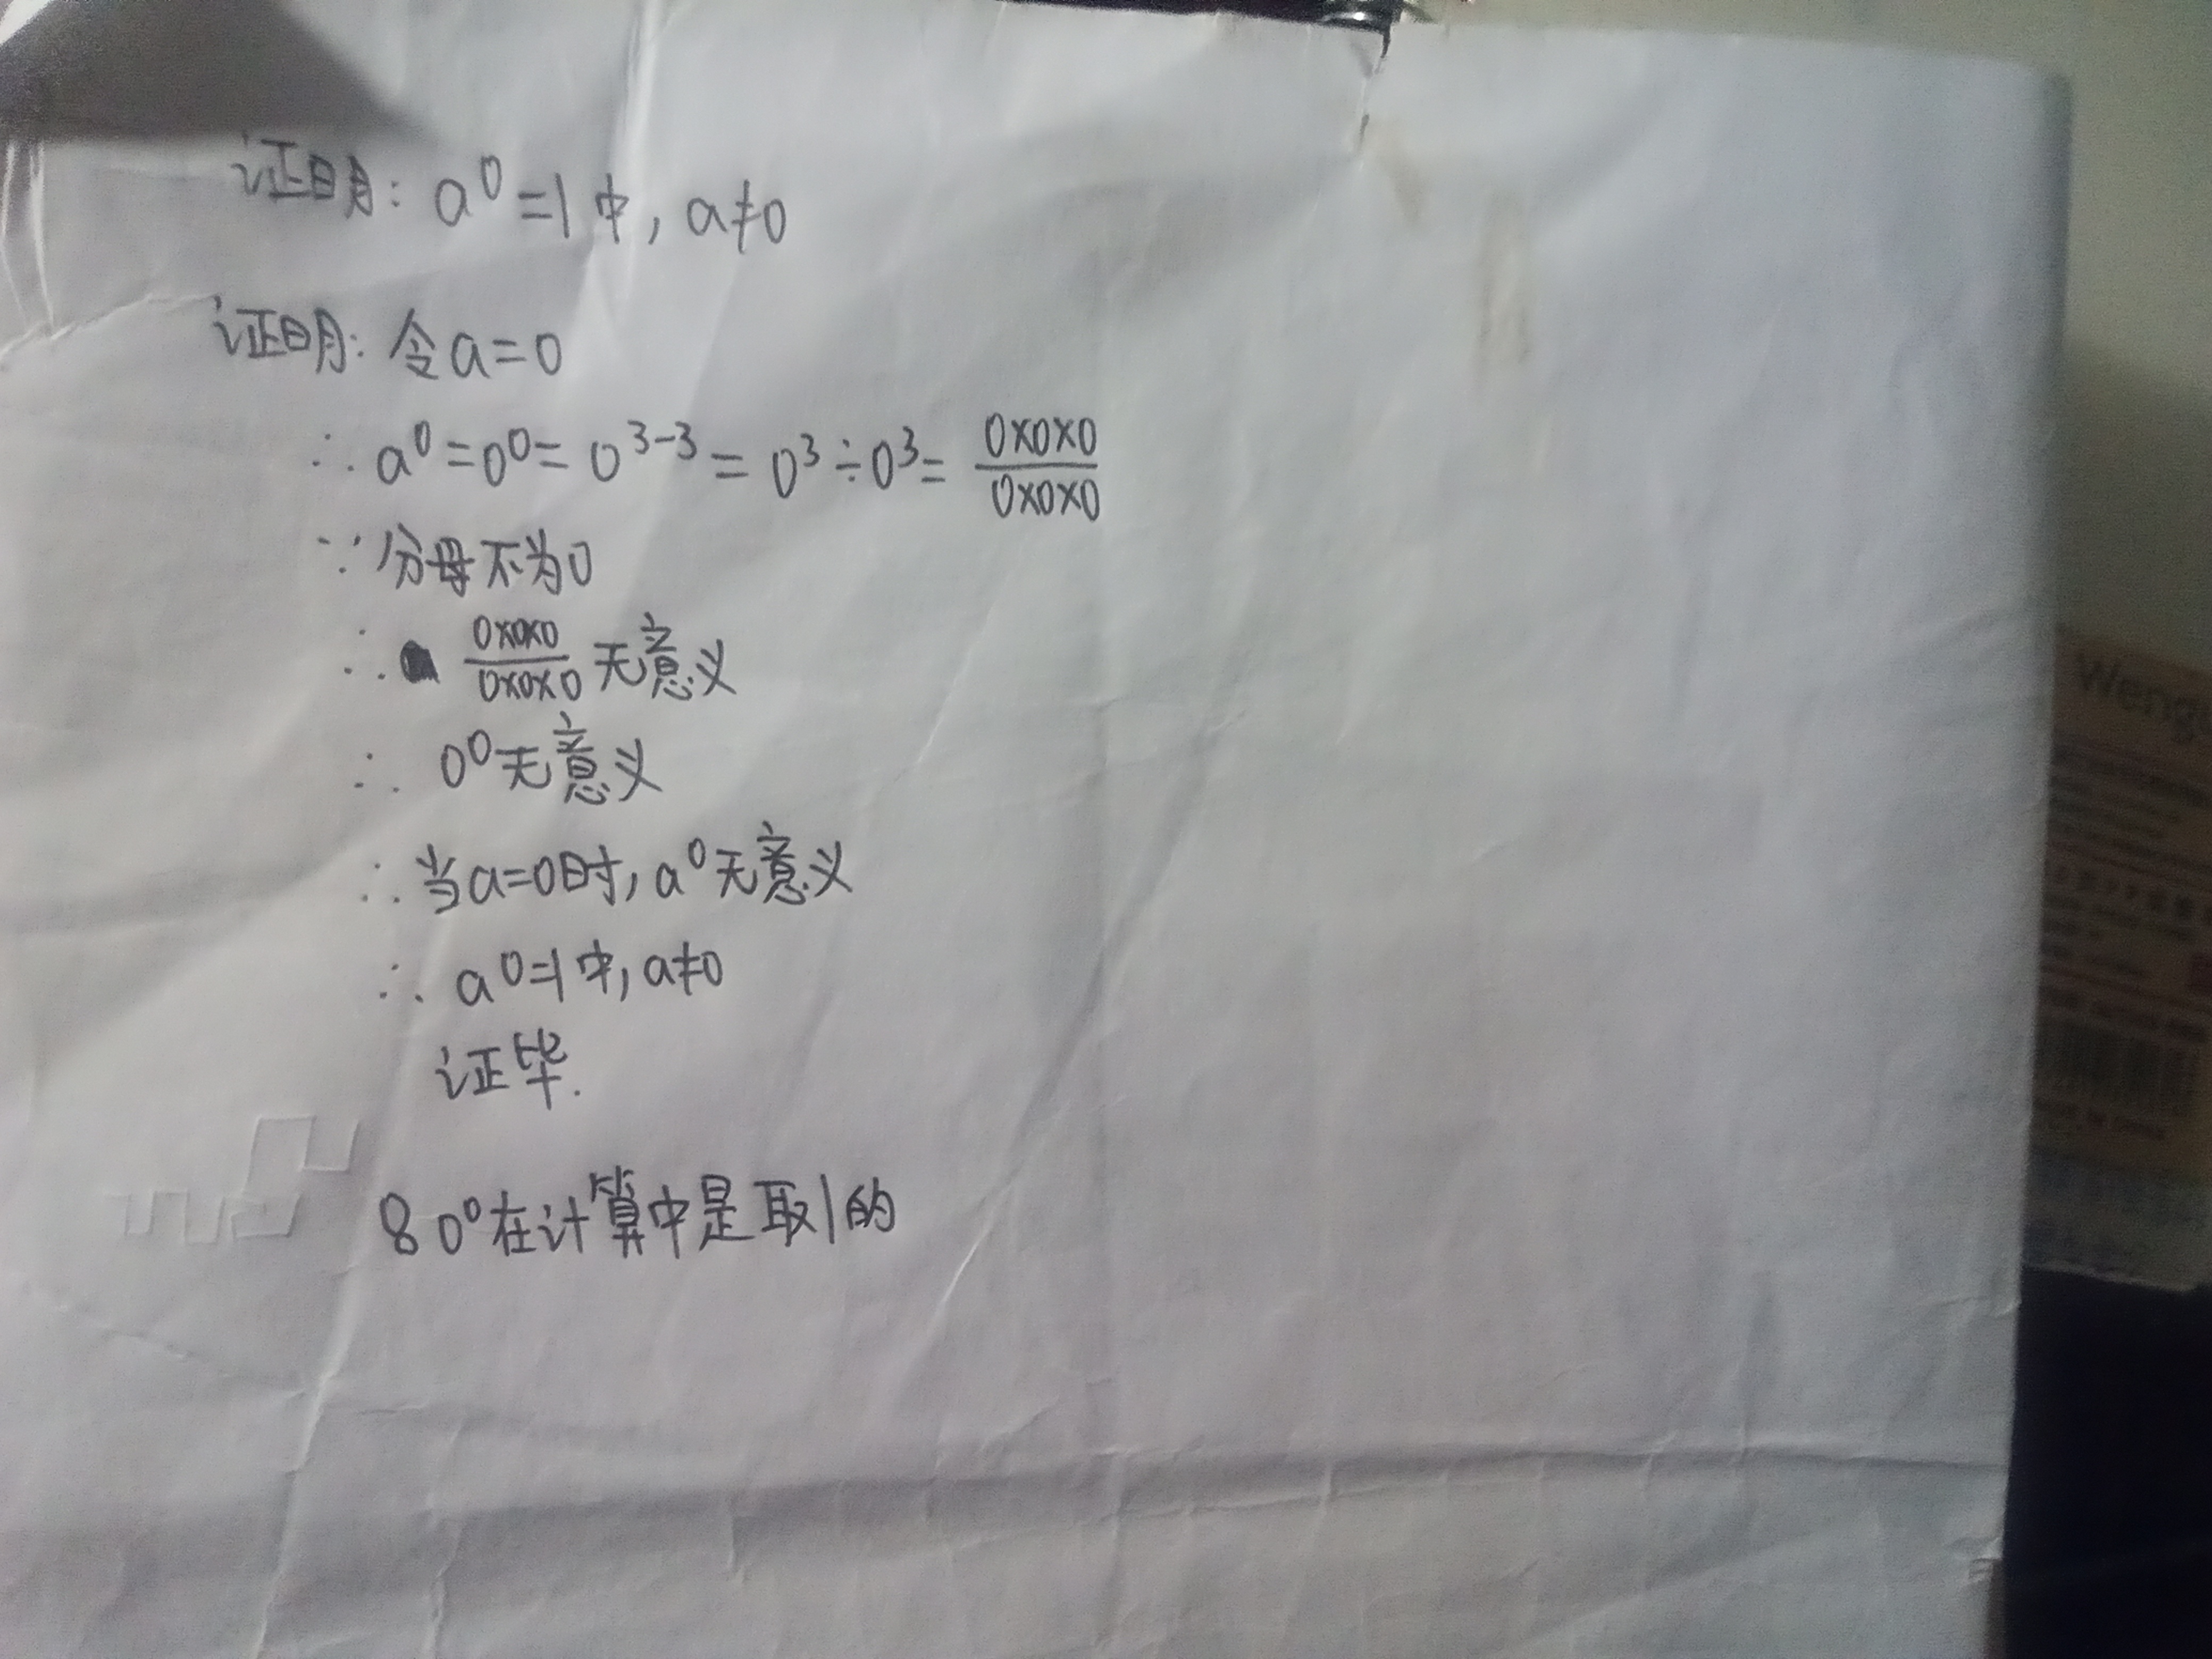 证明：a⁰=1中，a≠0
证明：令a=0
∴a⁰=0⁰=0³⁻³=0³÷0³=\frac{0×0×0}{0×0×0}
∵分母不为0
∴\frac{0×0×0}{0×0×0}无意义
∴0⁰无意义
∴当a=0时，a⁰无意义
∴a⁰=1中，a≠0
证毕.
8 0⁰在计算中是取1的
Weng